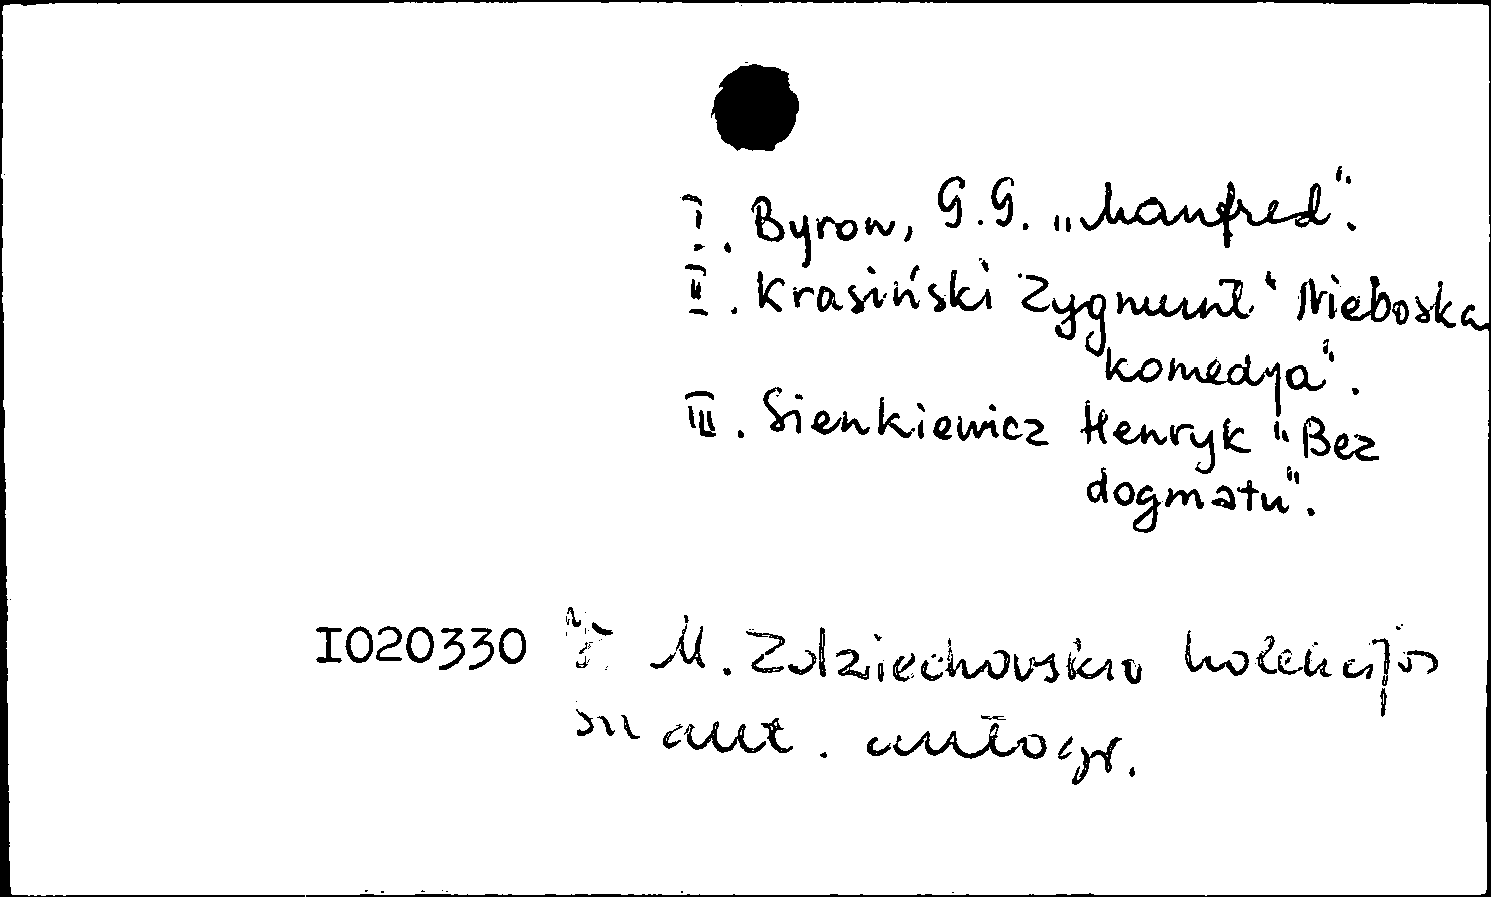 I. Byron, G.G. „Manfred“.
II. Krasiński Zygmunt “Nieboska
komedya“.
III. Sienkiewicz Henryk “Bez
dogmatu“.
I020330 Iš M. Zdziechovskio kolekcijos
su aut. autogr.